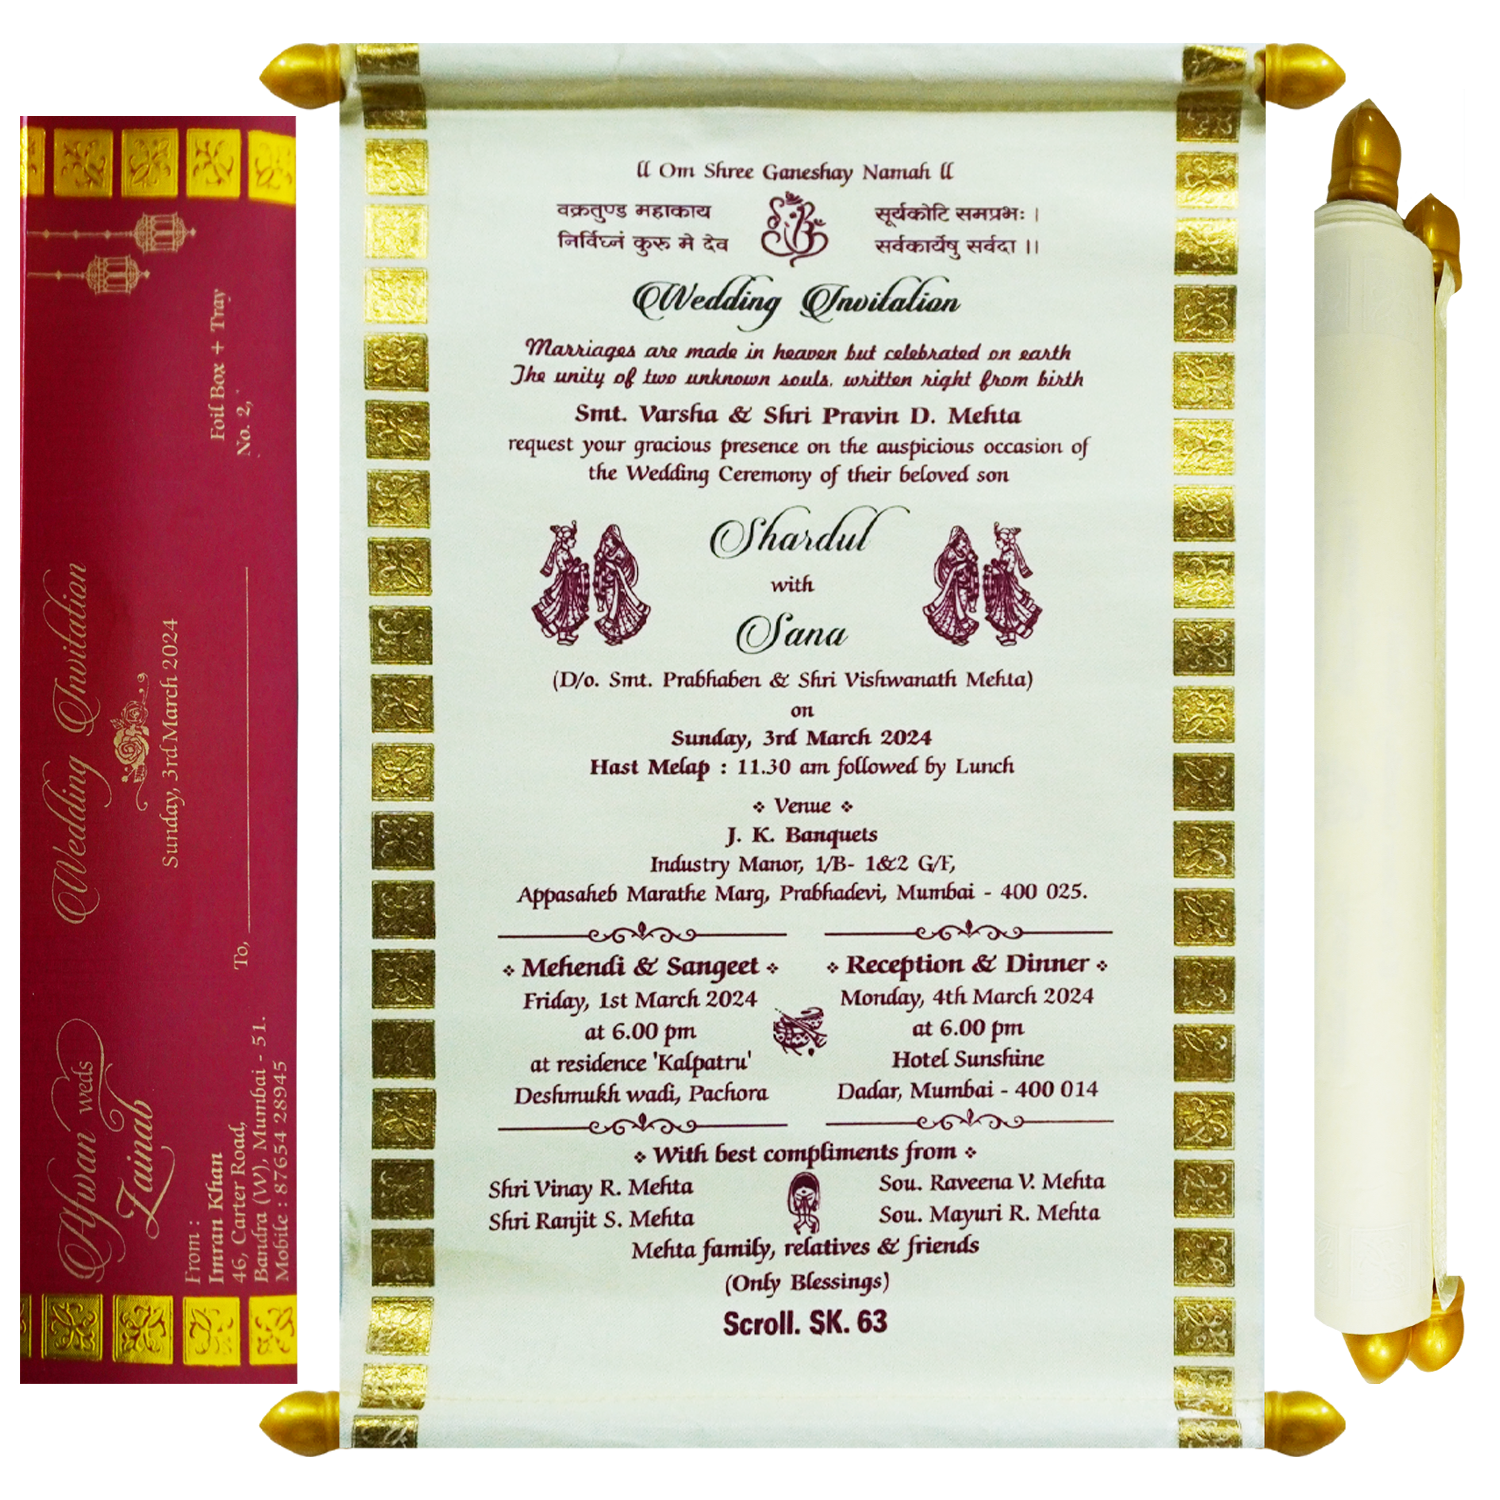 Foil Box + Tray
No. 2,
Wedding Invitation
Sunday, 3rd March 2024
To,
Afwan weds
Zainab
From :
Imran Khan
46, Carter Road,
Bandra (W), Mumbai - 51.
Mobile : 87654 28945
ll Om Shree Ganeshay Namah ll
वक्रतुण्ड महाकाय सूर्यकोटि समप्रभः ।
निर्विघ्नं कुरु मे देव सर्वकार्येषु सर्वदा ।।
Wedding Invitation
Marriages are made in heaven but celebrated on earth
The unity of two unknown souls, written right from birth
Smt. Varsha & Shri Pravin D. Mehta
request your gracious presence on the auspicious occasion of
the Wedding Ceremony of their beloved son
Shardul
with
Sana
(D/o. Smt. Prabhaben & Shri Vishwanath Mehta)
on
Sunday, 3rd March 2024
Hast Melap : 11.30 am followed by Lunch
❖ Venue ❖
J. K. Banquets
Industry Manor, 1/B- 1&2 G/F,
Appasaheb Marathe Marg, Prabhadevi, Mumbai - 400 025.
❖ Mehendi & Sangeet ❖
Friday, 1st March 2024
at 6.00 pm
at residence 'Kalpatru'
Deshmukh wadi, Pachora
❖ Reception & Dinner ❖
Monday, 4th March 2024
at 6.00 pm
Hotel Sunshine
Dadar, Mumbai - 400 014
❖ With best compliments from ❖
Shri Vinay R. Mehta Sou. Raveena V. Mehta
Shri Ranjit S. Mehta Sou. Mayuri R. Mehta
Mehta family, relatives & friends
(Only Blessings)
Scroll. SK. 63